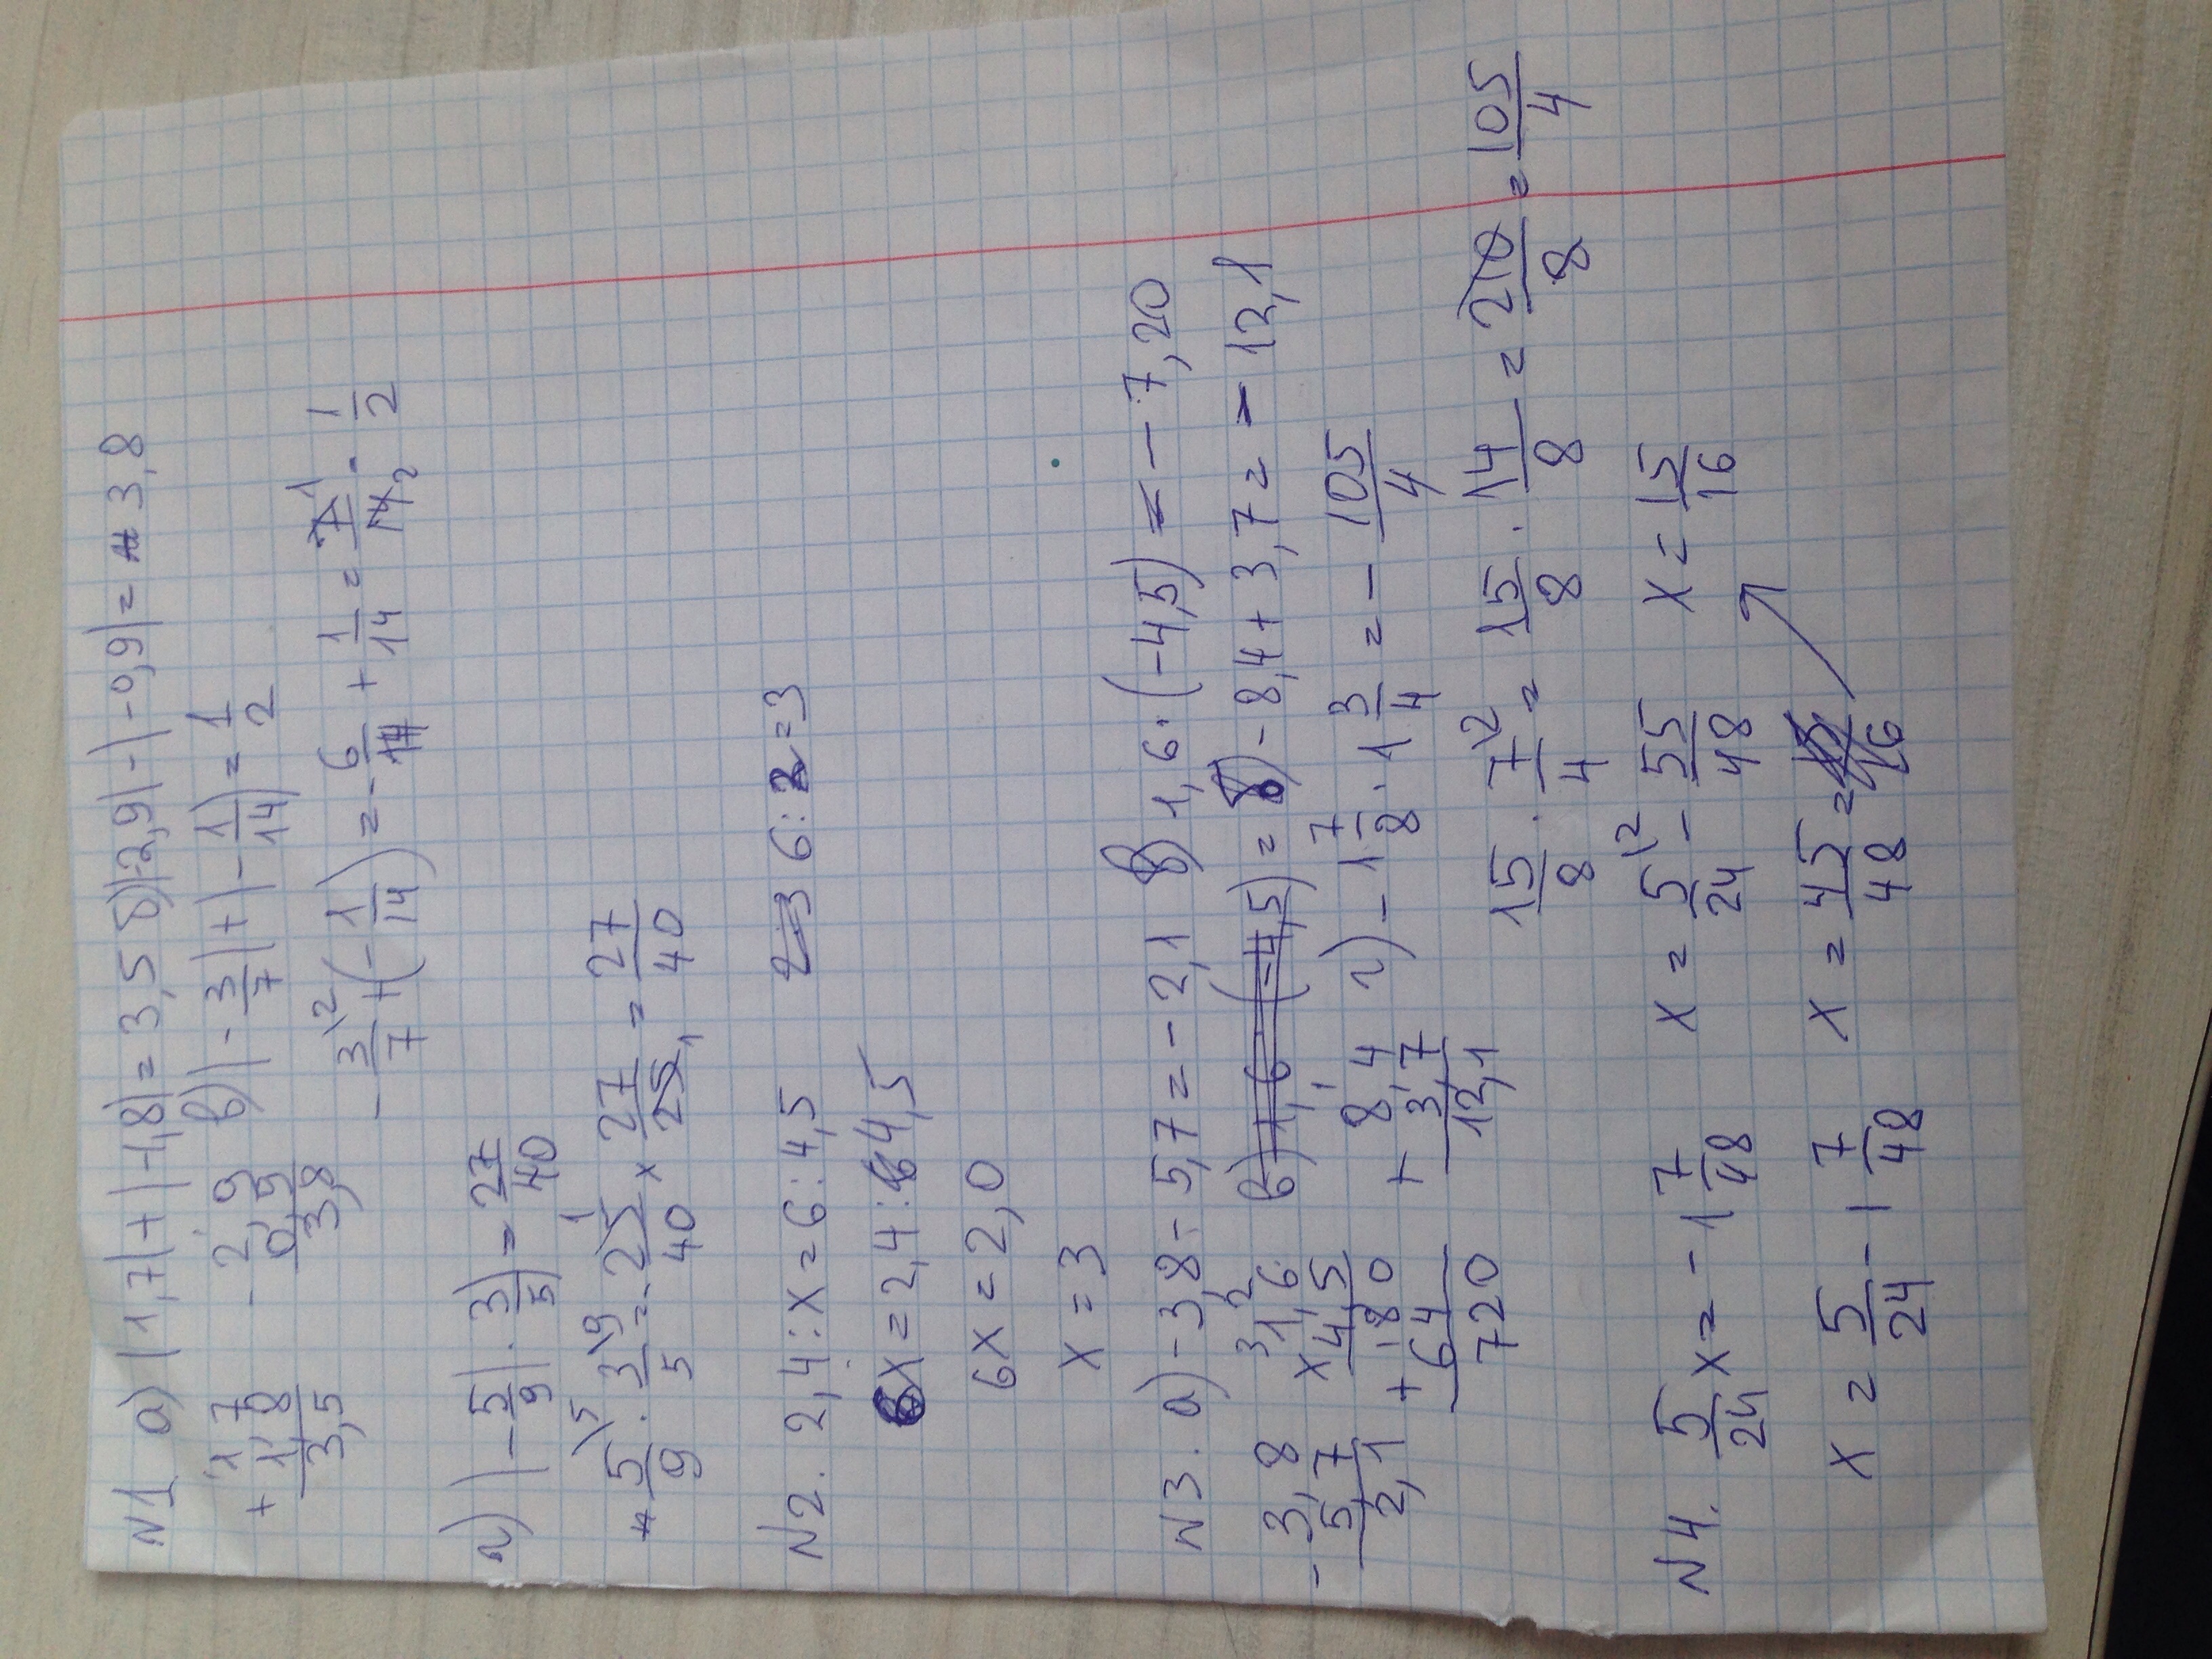 N1 а) |1,7|+|-1,8|=3,5 б)|-2,9|-|-0,9|=3,8
+ 1,7
1,8
3,5
- 2,9
0,9
3,8
в) |-3/7|+|-1/14|=1/2
-3\2/7+(-1/14)=-6/14+1/14=7 1/14 2=1/2
г) |-5/9|·3/5|=27/40
5\5/9·3\9/5=-25 1/40×27/25 1=27/40
N2. 2,4:x=6:4,5 6:2=3
6x=2,4:4,5
6x=2,0
x=3
N3. а)-3,8-5,7=-2,1 б)1,6·(-4,5)=-7,20
- 3,8
5,7
2,1
3 2
1,6
×4,5
+ 180
64
720
в) 1,6·(-4,5)= в)-8,4+3,7=-12,1
+ 8,4
3,7
12,1
г) -1 7/8·1 3/4=-105/4
15/8·7\2/4=15/8·14/8=210/8=105/4
N4. 5/24x=-1 7/48 x=5\2/24-55/48 x=15/16
x=5/24-1 7/48 x=45/48=